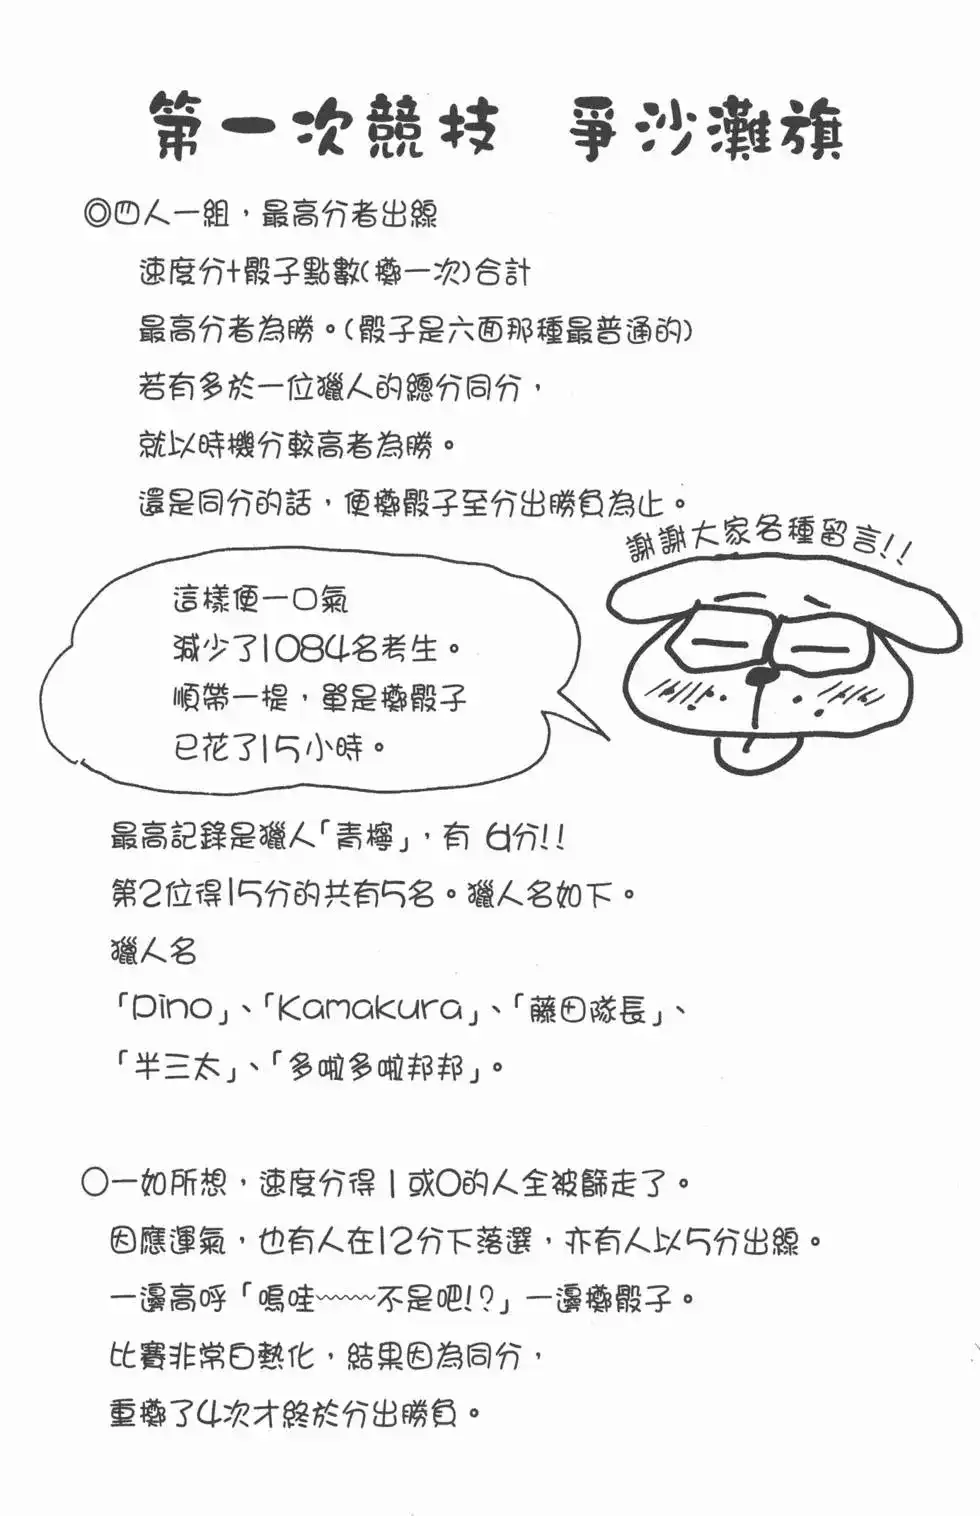 第一次競技　爭沙灘旗
◎四人一組，最高分者出線
速度分+骰子點數(擲一次)合計
最高分者為勝。(骰子是六面那種最普通的)
若有多於一位獵人的總分同分，
就以時機分較高者為勝。
還是同分的話，便擲骰子至分出勝負為止。
謝謝大家各種留言!!
這樣便一口氣
減少了1084名考生。
順帶一提，單是擲骰子
已花了15小時。
最高記錄是獵人「青檸」，有 6分!!
第2位得15分的共有5名。獵人名如下。
獵人名
「Dino」、「Kamakura」、「藤田隊長」、
「半三太」、「多啦多啦邦邦」。
○一如所想，速度分得1或0的人全被篩走了。
因應運氣，也有人在12分下落選，亦有人以5分出線。
一邊高呼「嗚哇~~~不是吧!?」一邊擲骰子。
比賽非常白熱化，結果因為同分，
重擲了4次才終於分出勝負。